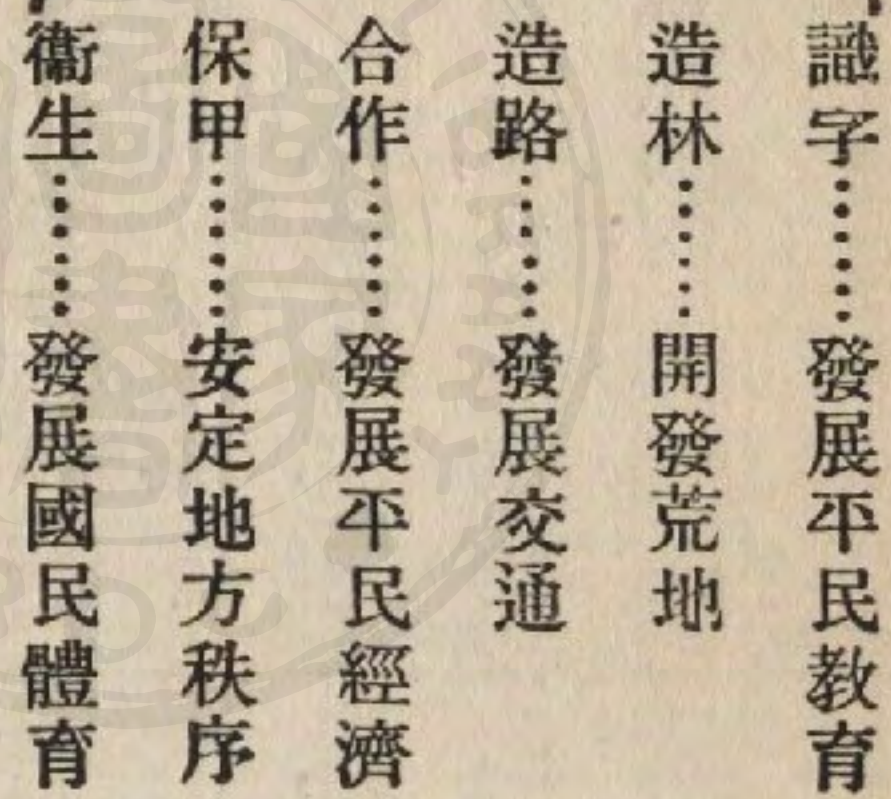 識字……發展平民教育
造林……開發荒地
造路……發展交通
合作……發展平民經濟
保甲……安定地方秩序
衞生……發展國民體育